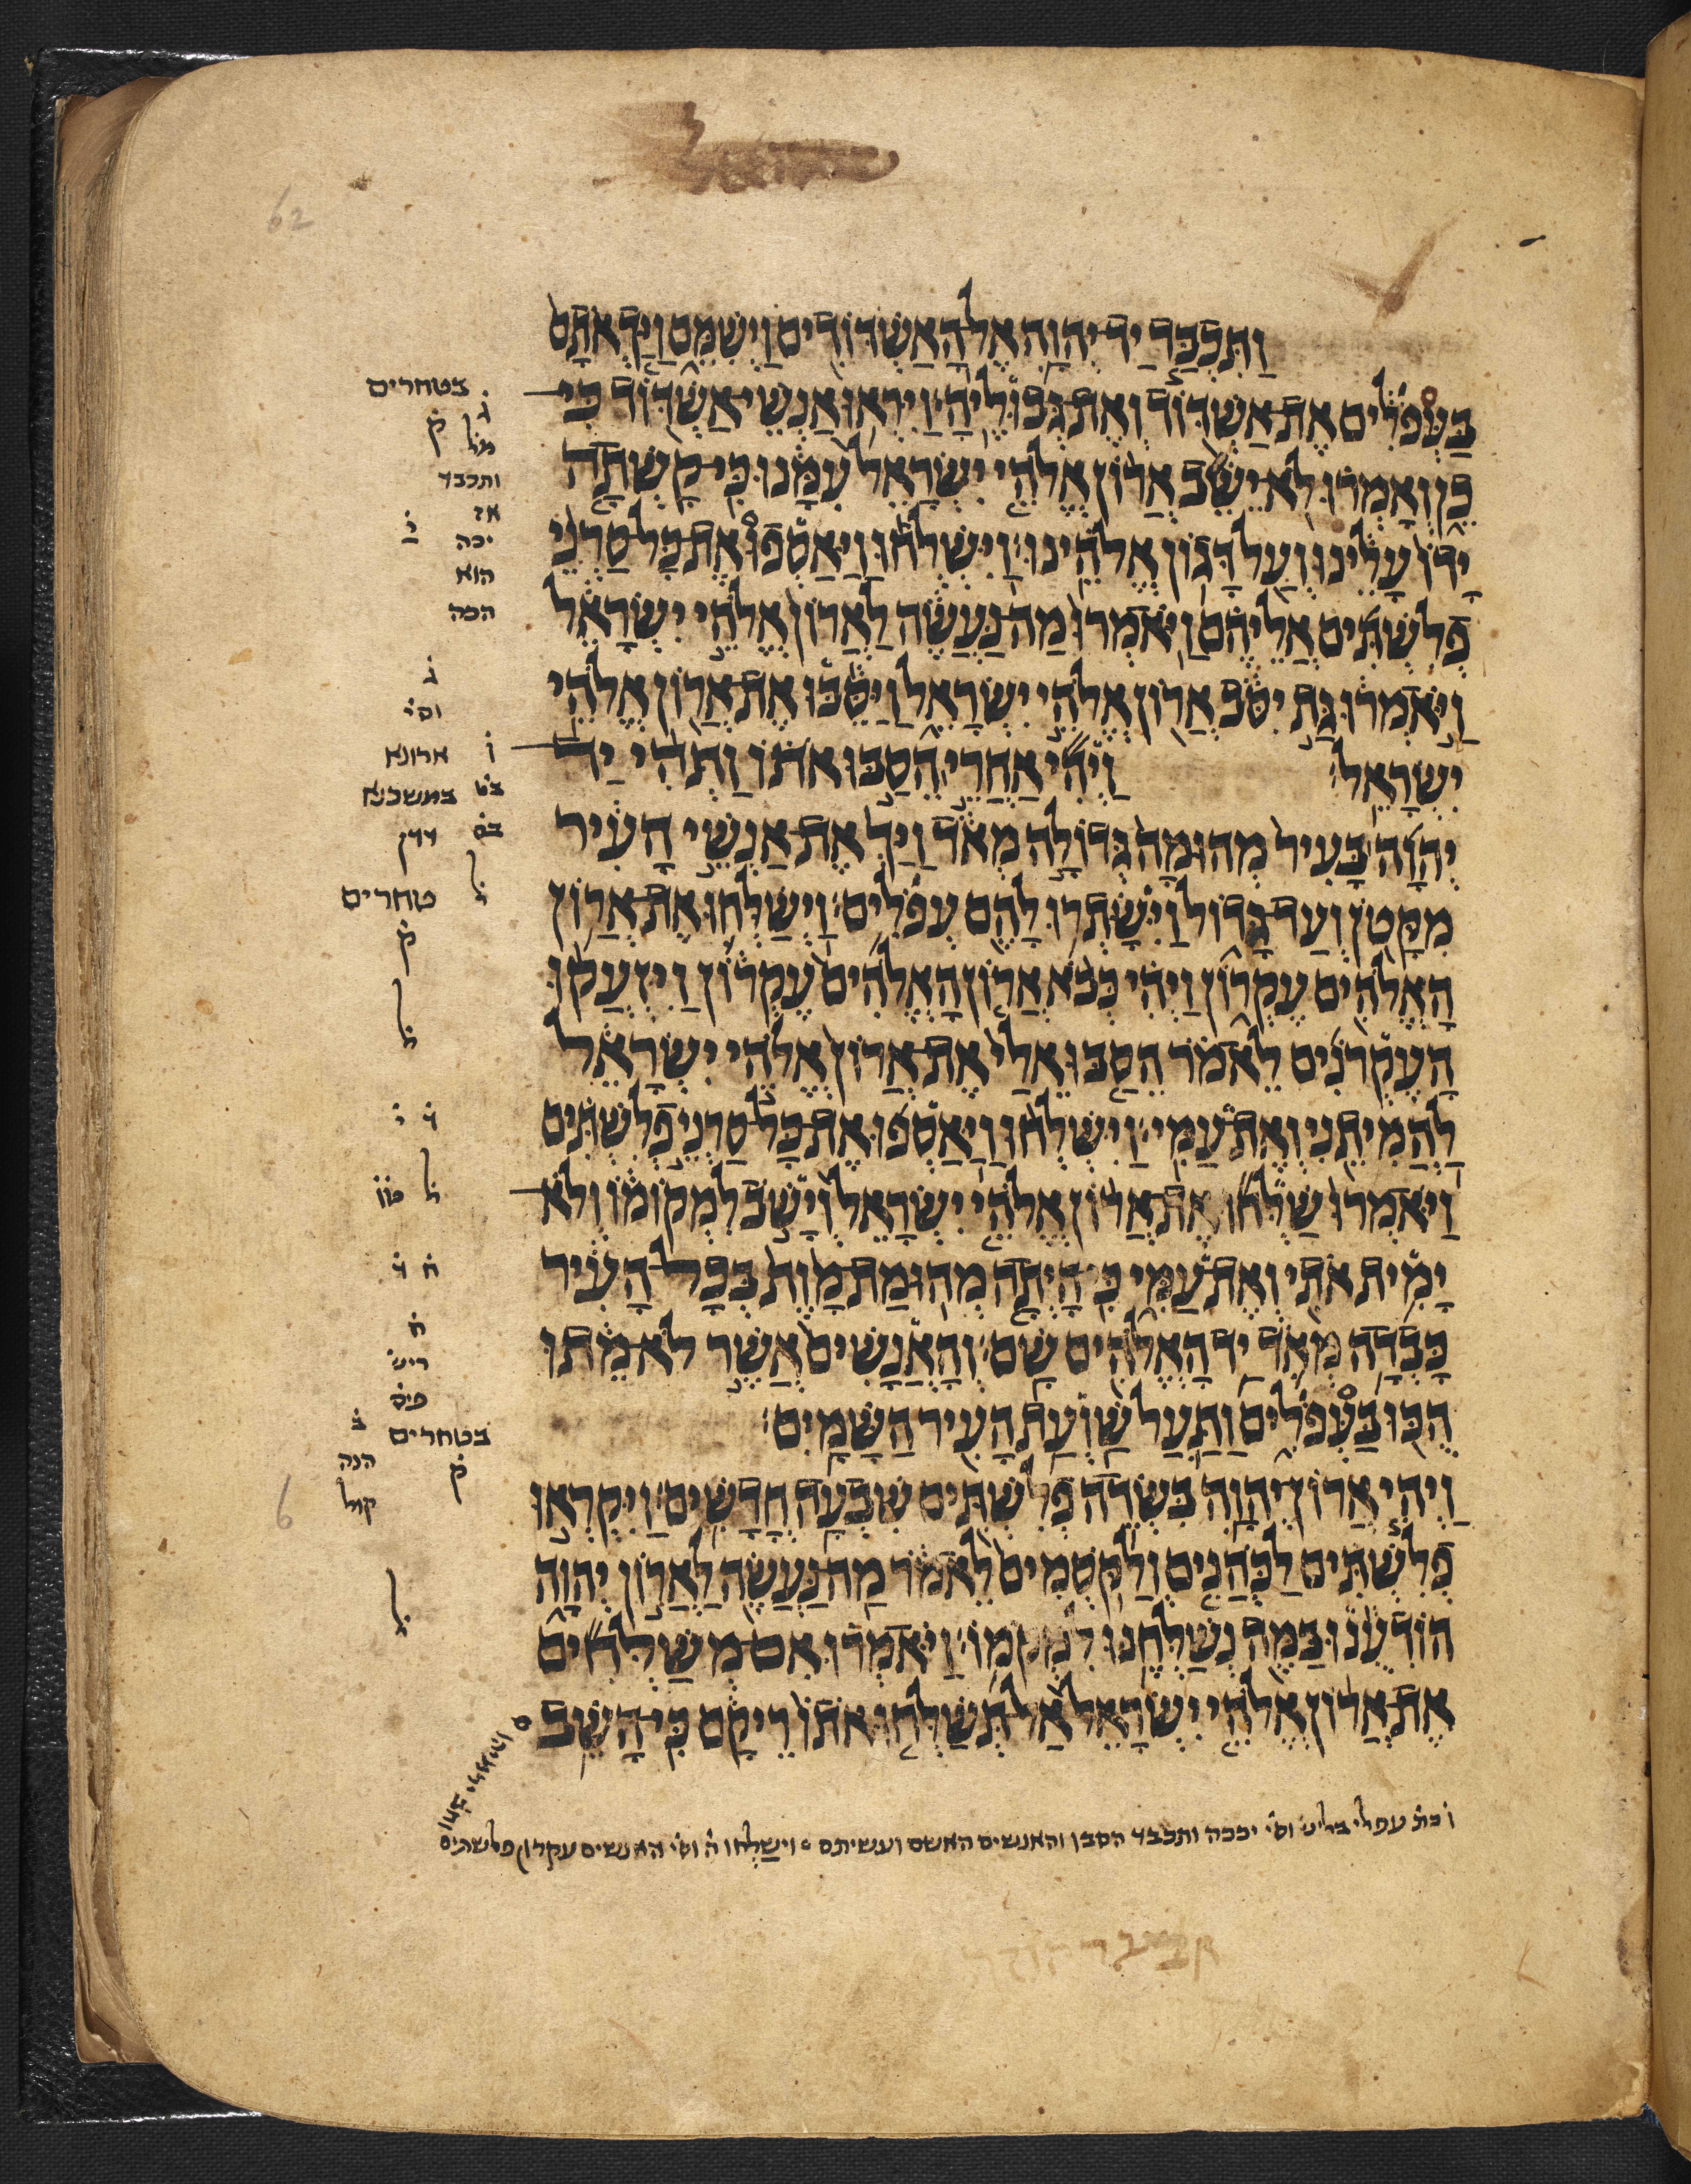 וַתִּכְבַּד יַד־יְהוָה אֶל־הָאַשְׁדּוֹדִים וַיְשִׁמֵּם וַיַּךְ אֹתָם
בַּעְפֹלִים אֶת־אַשְׁדּוֹד וְאֶת־גְּבוּלֶיהָ׃ וַיִּרְאוּ אַנְשֵׁי־אַשְׁדּוֹד כִּי־
כֵן וְאָמְרוּ לֹא־יֵשֵׁב אֲרוֹן אֱלֹהֵי יִשְׂרָאֵל עִמָּנוּ כִּי־קָשְׁתָה
יָדוֹ עָלֵינוּ וְעַל דָּגוֹן אֱלֹהֵינוּ׃ וַיִּשְׁלְחוּ וַיַּאַסְפוּ אֶת־כָּל־סַרְנֵי
פְלִשְׁתִּים אֲלֵיהֶם וַיֹּאמְרוּ מַה־נַּעֲשֶׂה לַאֲרוֹן אֱלֹהֵי יִשְׂרָאֵל
וַיֹּאמְרוּ גַּת יִסֹּב אֲרוֹן אֱלֹהֵי יִשְׂרָאֵל וַיַּסֵּבּוּ אֶת־אֲרוֹן אֱלֹהֵי
יִשְׂרָאֵל׃ וַיְהִי אַחֲרֵי הֵסַבּוּ אֹתוֹ וַתְּהִי יַד־
יְהוָה בָּעִיר מְהוּמָה גְּדוֹלָה מְאֹד וַיַּךְ אֶת־אַנְשֵׁי הָעִיר
מִקָּטֹן וְעַד־גָּדוֹל וַיִּשָּׂתְרוּ לָהֶם עְפֹלִים׃ וַיְשַׁלְּחוּ אֶת־אֲרוֹן
הָאֱלֹהִים עֶקְרוֹן וַיְהִי כְּבֹא אֲרוֹן הָאֱלֹהִים עֶקְרוֹן וַיִּזְעֲקוּ
הָעֶקְרֹנִים לֵאמֹר הֵסַבּוּ אֵלַי אֶת־אֲרוֹן אֱלֹהֵי יִשְׂרָאֵל
לַהֲמִיתֵנִי וְאֶת־עַמִּי׃ וַיִּשְׁלְחוּ וַיַּאַסְפוּ אֶת־כָּל־סַרְנֵי פְלִשְׁתִּים
וַיֹּאמְרוּ שַׁלְּחוּ אֶת־אֲרוֹן אֱלֹהֵי יִשְׂרָאֵל וְיָשֹׁב לִמְקוֹמוֹ וְלֹא־
יָמִית אֹתִי וְאֶת־עַמִּי כִּי־הָיְתָה מְהוּמַת־מָוֶת בְּכָל־הָעִיר
כָּבְדָה מְאֹד יַד הָאֱלֹהִים שָׁם׃ וְהָאֲנָשִׁים אֲשֶׁר לֹא־מֵתוּ
הֻכּוּ בַּעְפֹלִים וַתַּעַל שַׁוְעַת הָעִיר הַשָּׁמָיִם׃
וַיְהִי אֲרוֹן־יְהוָה בִּשְׂדֵה פְלִשְׁתִּים שִׁבְעָה חֳדָשִׁים׃ וַיִּקְרְאוּ
פְלִשְׁתִּים לַכֹּהֲנִים וְלַקֹּסְמִים לֵאמֹר מַה־נַּעֲשֶׂה לַאֲרוֹן יְהוָה
הוֹדִעֻנוּ בַּמֶּה נְשַׁלְּחֶנּוּ לִמְקוֹמוֹ׃ וַיֹּאמְרוּ אִם־מְשַׁלְּחִים
אֶת־אֲרוֹן אֱלֹהֵי יִשְׂרָאֵל אַל־תְּשַׁלְּחוּ אֹתוֹ רֵיקָם כִּי־הָשֵׁב
בטחרים
ג
ק
מל
ותכבד
אז
יכה
הוא
הכה
ג
וס׳
ו ארונא
במשכנא
ל
טחרים
ק
ל
ל
ח
ריש
בטחרים
ק
הנה
קול
ל
עפלי וס׳ יככה ותכבד הסבו והאנשים האשם ועשיתם וישלחו ה׳ וס׳ האנשים עקרון פלשתים
62
6